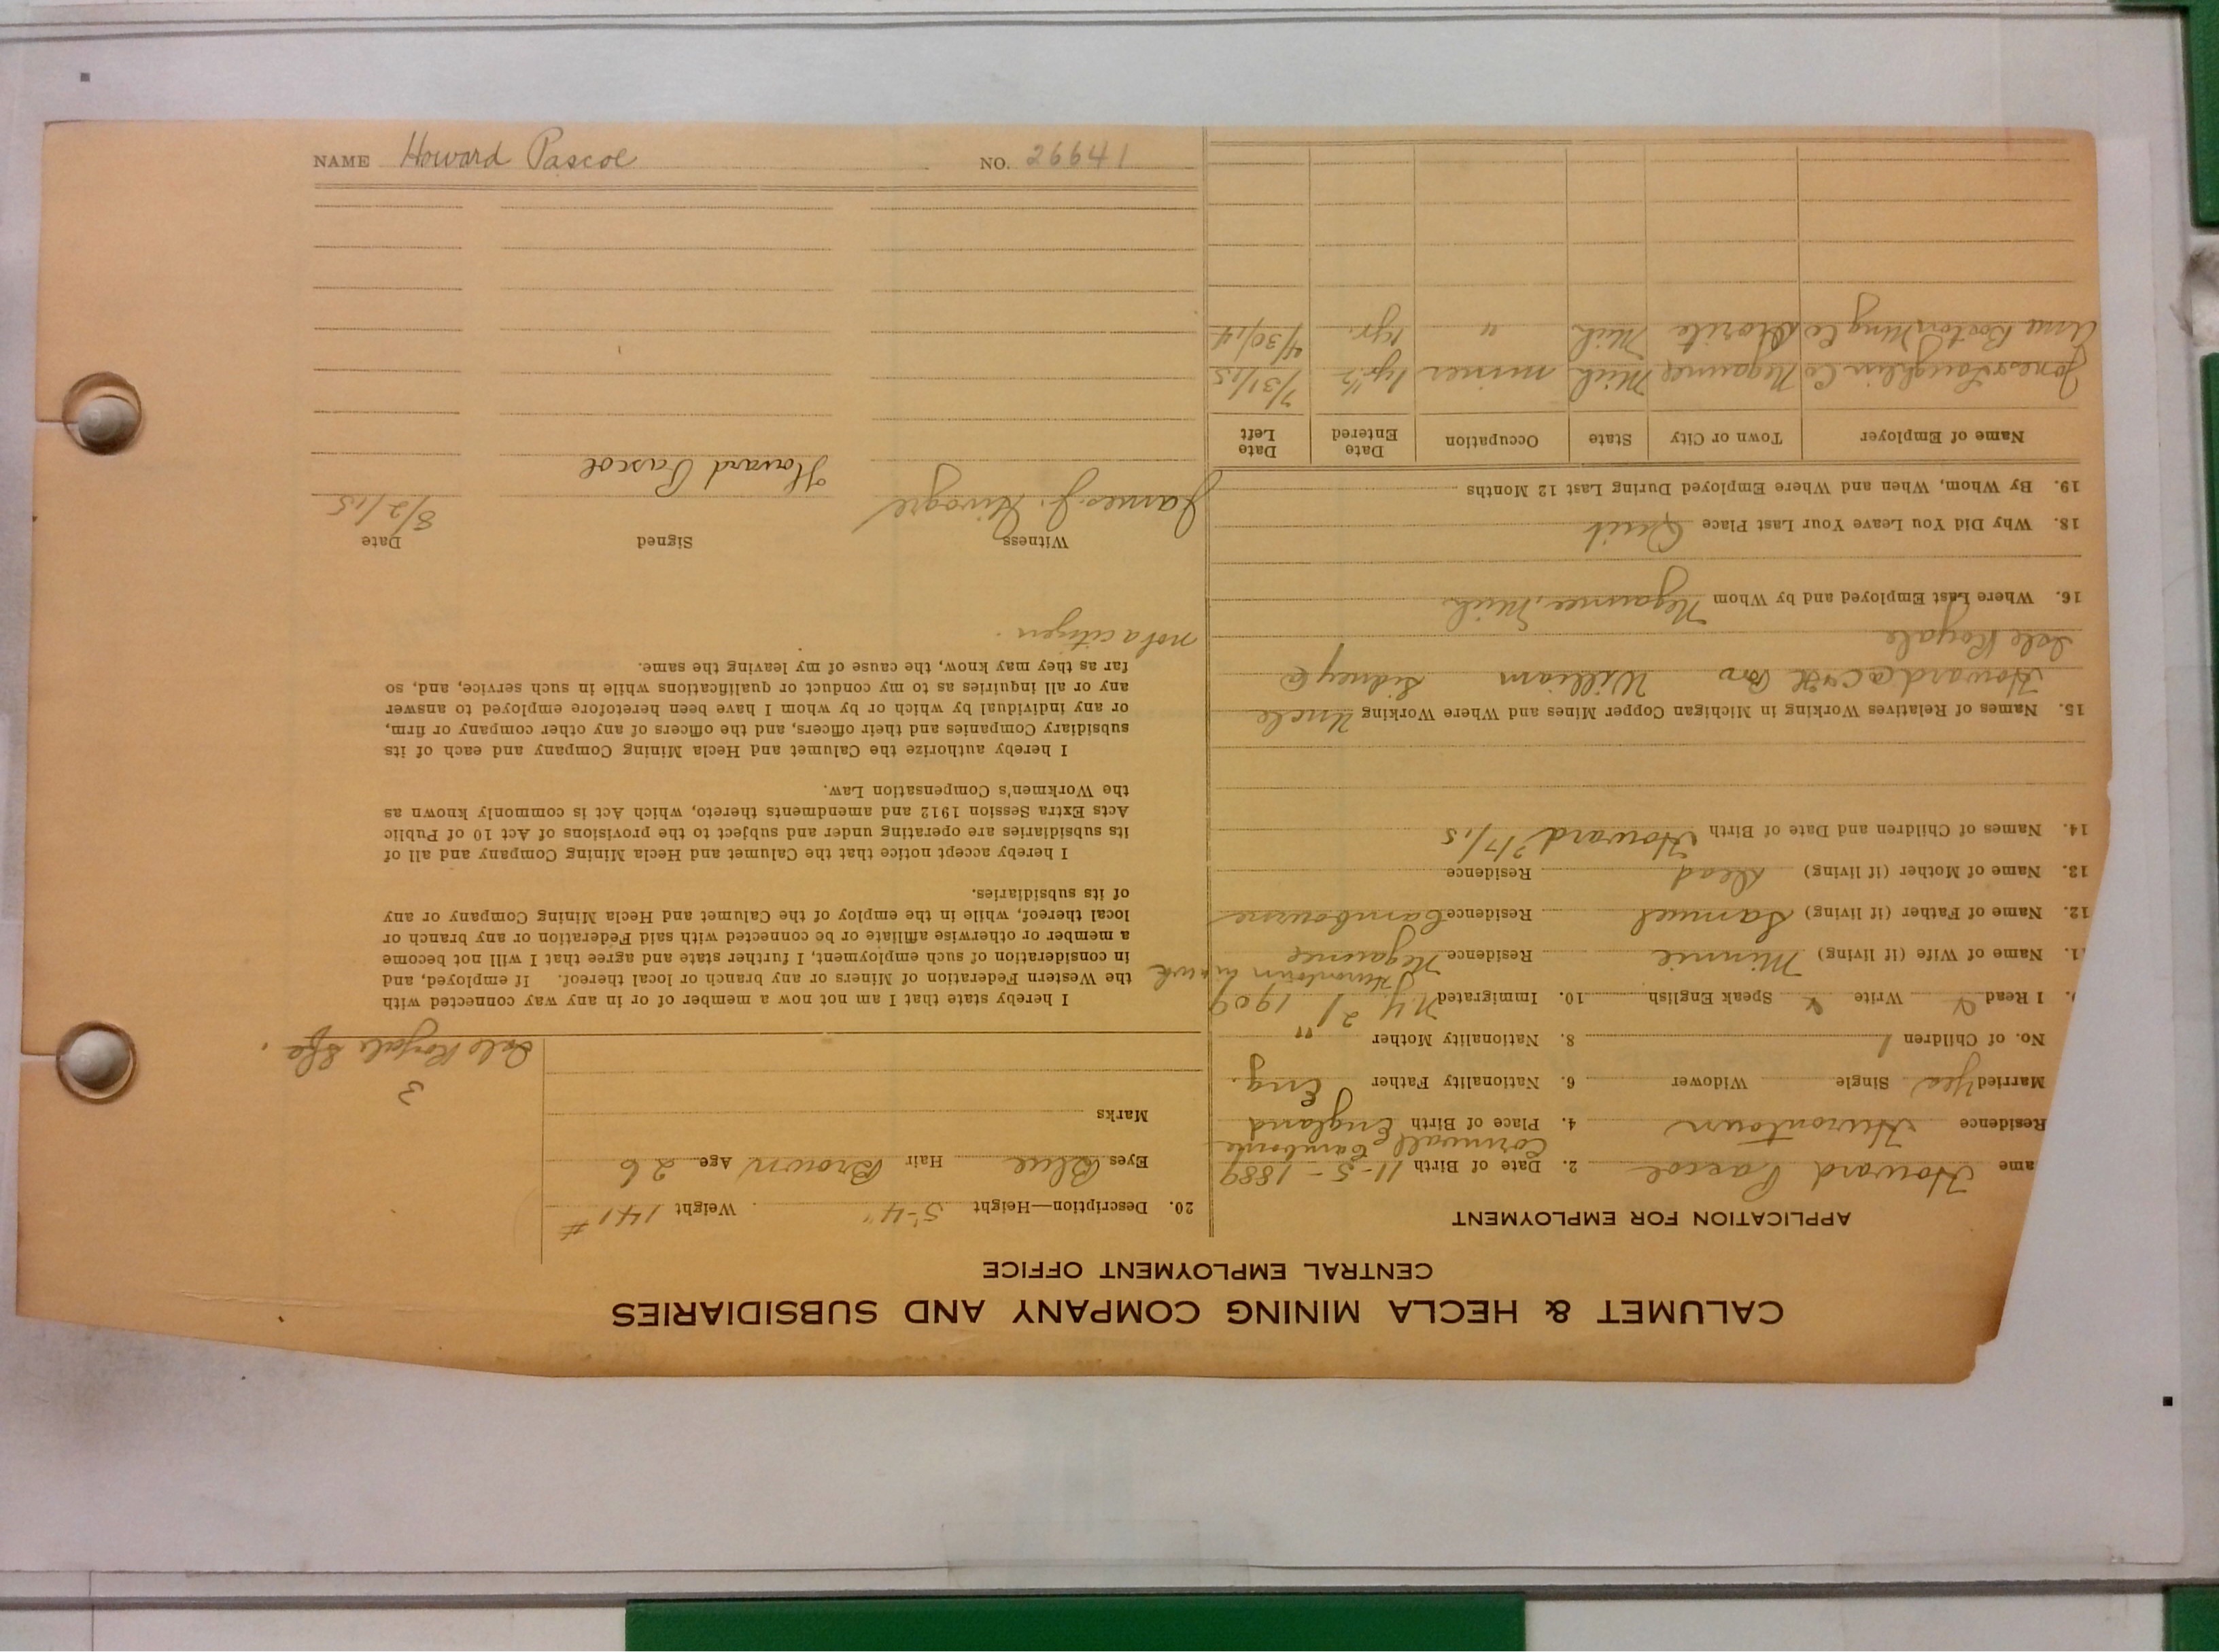 CALUMET & HECLA MINING COMPANY AND SUBSIDIARIES
CENTRAL EMPLOYMENT OFFICE
APPLICATION FOR EMPLOYMENT
ame Howard Pascoe 2. Date of Birth 11-5-1889
Cornwall Camborne
Residence Hurontown 4. Place of Birth England
Married Yes Single Widower 6. Nationality Father Eng.
No. of Children 1 8. Nationality Mother "
1 Read Write Speak English 10. Immigrated N.Y. 2/1909
Hurontown
1. Name of Wife (if living) Minnie Residence Negaunee
12. Name of Father (if living) Samuel Residence Cambourne
13. Name of Mother (if living) Dead Residence
14. Names of Children and Date of Birth Howard 2/7/15
15. Names of Relatives Working in Michigan Copper Mines and Where Working Uncle
Howard @ C & H Bro William Sidney @
Isle Royale
16. Where Last Employed and by Whom Negaunee, Mich.
18. Why Did You Leave Your Last Place Quit
19. By Whom, When and Where Employed During Last 12 Months
Name of Employer Town or City State Occupation Date Entered Date Left
Jones & Laughlin Co Negaunee Mich miner 1 yr ½ 7/31/15
Boston Ming Co Mich " 1 yr. 4/30/14
20. Description—Height 5'-4" Weight 141 #
Eyes Blue Hair Brown Age 26
Marks
3
Isle Royale
I hereby state that I am not now a member of or in any way connected with
the Western Federation of Miners or any branch or local thereof. If employed, and
in consideration of such employment, I further state and agree that I will not become
a member or otherwise affiliate or be connected with said Federation or any branch or
local thereof, while in the employ of the Calumet and Hecla Mining Company or any
of its subsidiaries.
I hereby accept notice that the Calumet and Hecla Mining Company and all of
its subsidiaries are operating under and subject to the provisions of Act 10 of Public
Acts Extra Session 1912 and amendments thereto, which Act is commonly known as
the Workmen's Compensation Law.
I hereby authorize the Calumet and Hecla Mining Company and each of its
subsidiary Companies and their officers, and the officers of any other company or firm,
or any individual by which or by whom I have been heretofore employed to answer
any or all inquiries as to my conduct or qualifications while in such service, and, so
far as they may know, the cause of my leaving the same.
not a citizen.
Witness Signed Date
James J. Howard Pascoe 8/2/15
NAME Howard Pascoe NO. 26641